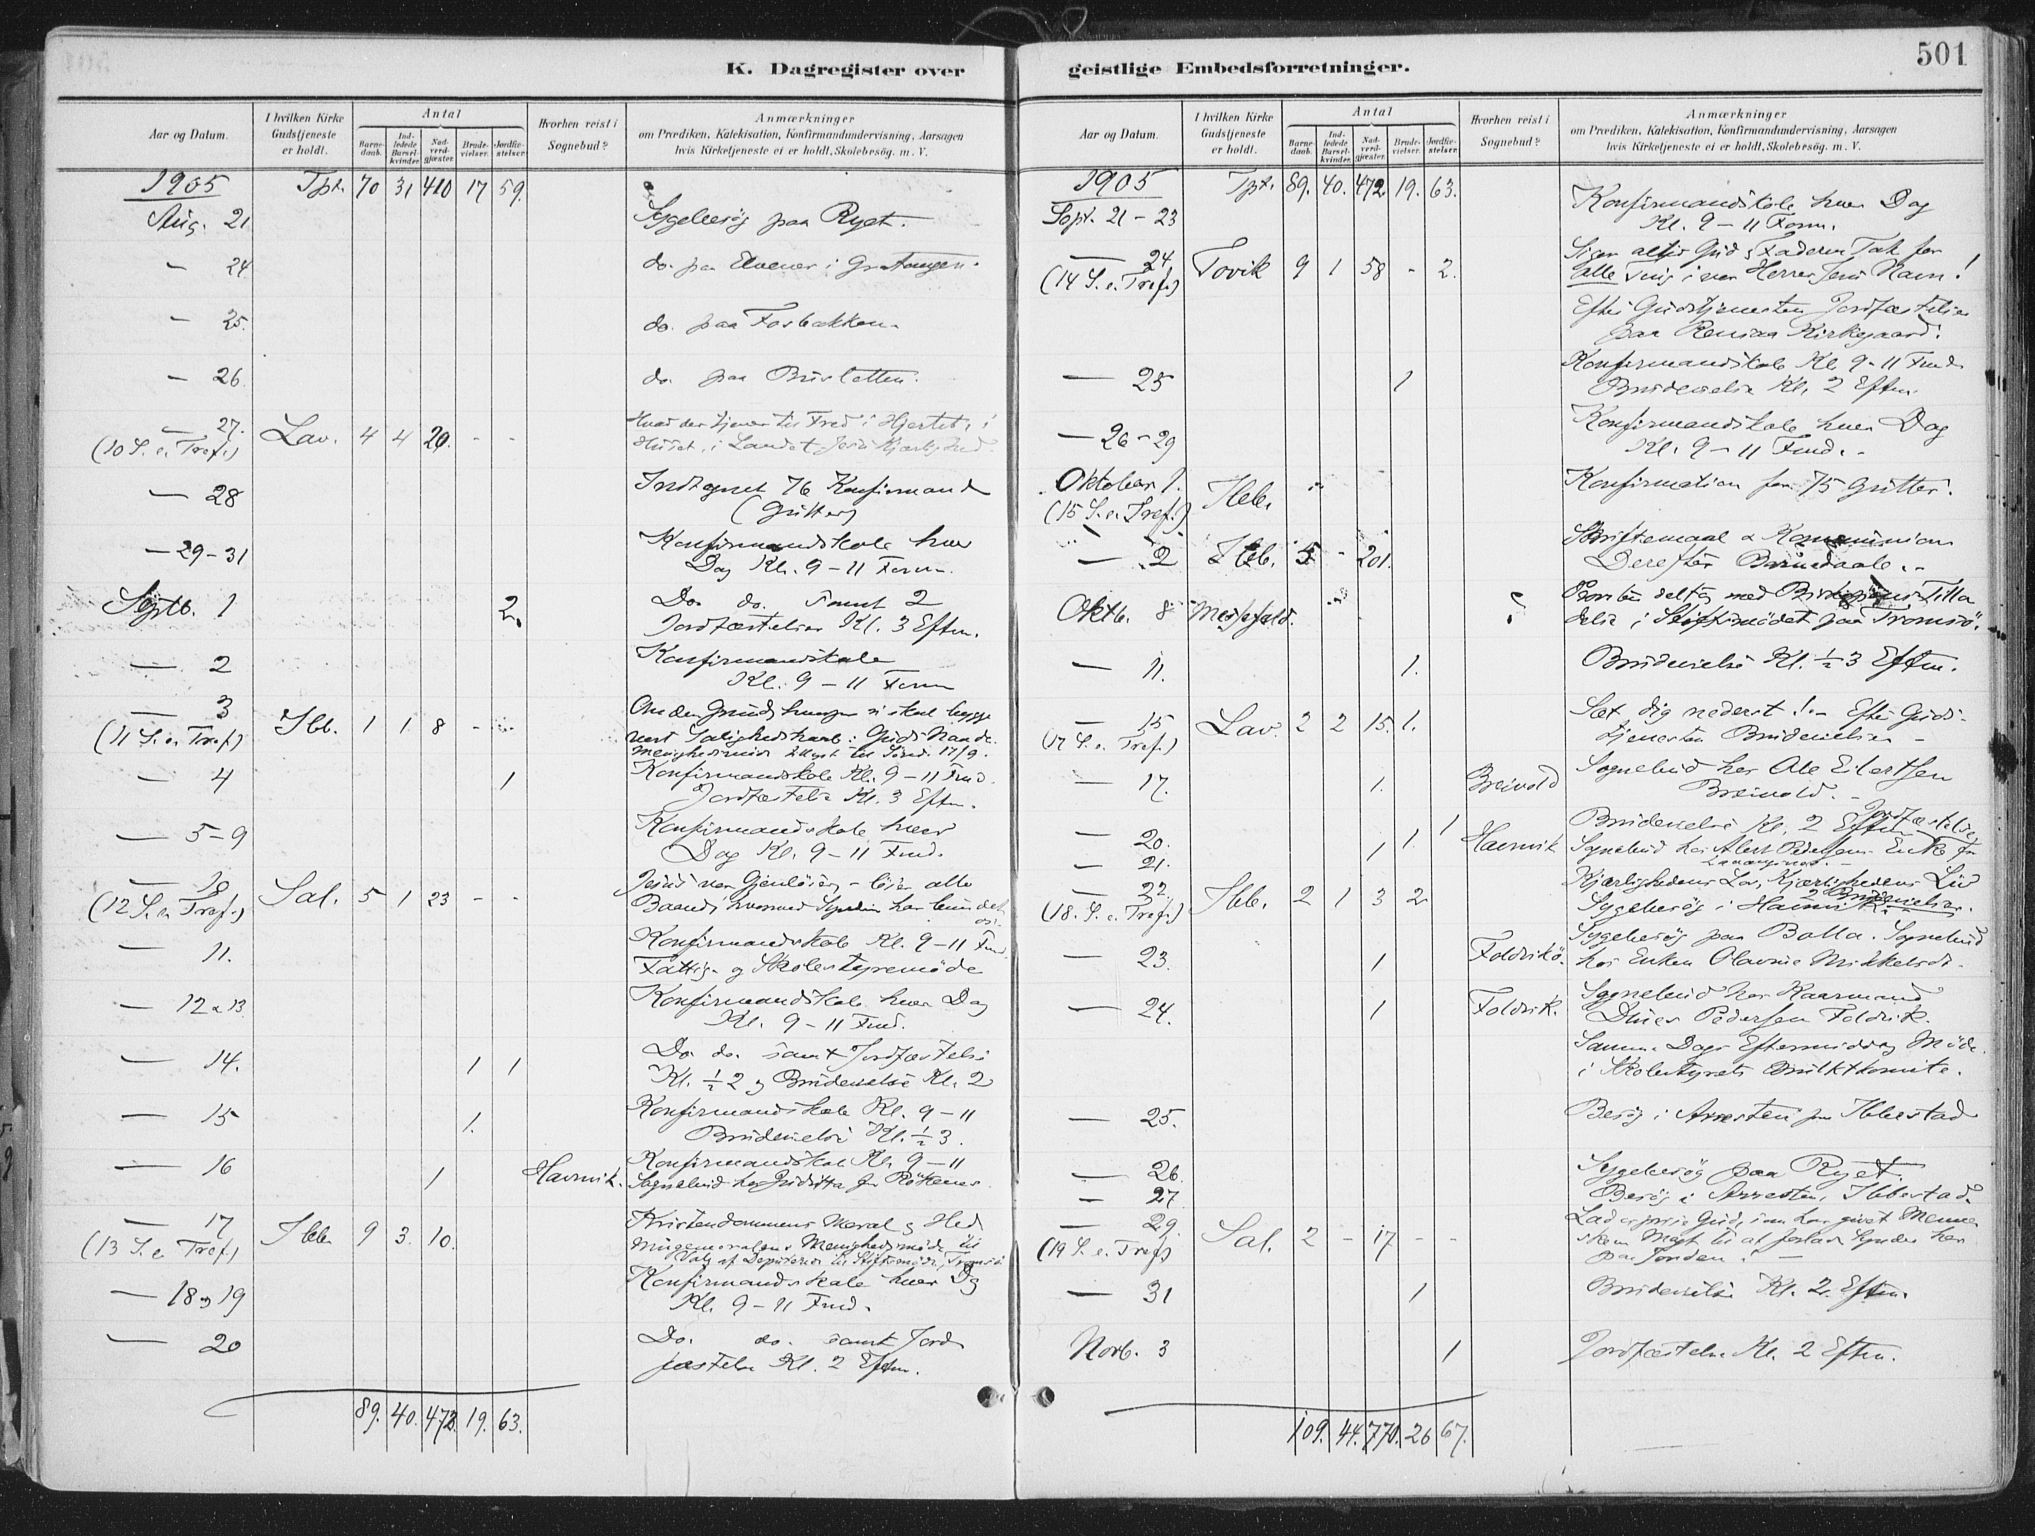 K. Dagregister over
Aar og Datum.
I hvilken Kirke
Gudstjeneste
er holdt.
Antal
Barne-
daab.
Ind-
ledede
Barsel-
kvinder.
Nad-
verd-
gjæster.
Brude-
vielser.
Jordfæ-
stelser.
Hvorhen reist i
Sognebud?
Anmærkninger
om Prædiken, Katekisation, Konfirmandundervisning, Aarsagen
hvis Kirketjeneste ei er holdt, Skolebesøg. m. V.
1905 Tpt. 70 31 410 17 59.
Aug. 21 Sygebesøg paa Ryet.
— 24 do. paa Elvenes i Gratangen.
— 25. do. paa Fosbakken.
— 26 do. paa
— 27. Hvad der tjener til Fred i Hjertet, i
(10 S. e. Tref.) Lav. 4 4 20. - - Huset, i Landet
— 28 Indtegnet 76 Konfirmander
(Gutter)
— 29-31 Konfirmandskole hver
Dag Kl. 9-11 Form.
Septb. 1 2. Do. do. samt 2
Jordfæstelser Kl. 3 Eftm.
— 2 Konfirmandskole
Kl. 9-11 Form
— 3 Om den Grund, hvorpaa vi skal bygge
(11 S. e. Tref.) Ibb. 1 1 8 - - vort Saligheds : Guds Naade.
til Sønd. 17/9.
— 4 1 Konfirmandskole Kl. 9-11 Fmd.
Jordfæstelse Kl. 3 Eftm.
— 5-9 Konfirmandskole hver
Dag Kl. 9-11 Fmd.
— 10 Jesus vor Gjenløser, - løser alle
(12 S. e. Tref.) Sal. 5 1 23 - - Baand, hvormed Synden har bundet
os.
— 11. Konfirmandskole Kl. 9-11 Fmd.
Fattig- og Skolestyremøde
— 12 & 13. Konfirmandskole hver Dag
Kl. 9-11 Fmd.
— 14. 1 1 Do. do. samt Jordfæstelse
Kl. ½2 og Brudevielse Kl. 2
— 15 1. Konfirmandskole Kl. 9-11
Brudevielse Kl. ½3.
— 16 1 Havnvik. Konfirmandskole Kl. 9-11
Sognebud hos
— 17 Kristendommens Moral og Hed
(13 S. e. Tref.) Ibb. 9 3. 10. Menighedsmøde til
Valg af Deputerede til Stiftsmøde, Tromsø
— 18 og 19 Konfirmandskole hver Dag
Kl. 9-11 Fmd.
— 20 Do. do. samt Jord
fæstelse Kl. 2 Eftm.
89. 40. 472. 19. 63.
geistlige Embedsforretninger.
501
Aar og Datum.
I hvilken Kirke
Gudstjeneste
er holdt.
Antal
Barne-
daab.
Ind-
ledede
Barsel-
kvinder.
Nad-
verd-
gjæster.
Brude-
vielser.
Jordfæ-
stelser.
Hvorhen reist i
Sognebud?
Anmærkninger
om Prædiken, Katekisation, Konfirmandundervisning, Aarsagen
hvis Kirketjeneste ei er holdt, Skolebesøg. m. V.
1905 Tpt. 89. 40. 472 19. 63.
Sept. 21-23 Konfirmandskole hver Dag
Kl. 9-11 Form.
— 24 Siger altid Gud og Faderen Tak for
(14 S. e. Tref.) Tovik 9 1 58 - 2. alle Ting i vor Herres Jesu Navn!
Efter Gudstjenesten Jordfæstelse
paa Kirkegaard.
— 25 1 Konfirmandskole Kl. 9-11 Fmd.
Brudevielse Kl. 2 Eftm.
— 26-29 Konfirmandskole hver Dag
Kl. 9-11 Fmd.
Oktober 1. Konfirmation for 75 Gutter.
(15 S. e. Tref.) Ibb.
— 2 Ibb. 5 - 201. Skriftemaal & Kommunion
Derefter Barnedaab.
Oktb. 8 Messefald. deltog med
delse i Stiftsmødet paa Tromsø.
— 11. 1. Brudevielse Kl. ½3 Eftm.
— 15 Sæt dig nederst! - Efter Guds-
(17 S. e. Tref.) Lav. 2 2 15. 1. tjenesten Brudevielse
— 17. 1. Breivold Sognebud hos Ole Eilertsen
Breivold.
— 20. 1. 1 Brudevielse Kl. 2 Eftm Jordfæstelse
— 21. 1 Havnvik Sognebud hos Pedersens Enke
— 22 Kjærlighedens Lov, Kjærlighedens Liv
2 Brudevielser.
(18. S. e. Tref.) Ibb. 2 1 3 2 Sygebesøg i Havnvik.
— 23. 1 Foldvik. Sygebesøg paa Bolla. Sognebud
hos Enken Olavine Mikkelsdt.
— 24. 1 Foldvik. Sognebud hos Kaarmand
Pedersen Foldvik.
Samme Dags Eftermiddag Møde
i Skolestyrets
— 25. Besøg i Arresten paa Ibbestad
— 26. Sygebesøg paa Ryet.
— 27 Besøg i Arresten, Ibbestad.
— 29. Lad os prise Gud, som har givet Menne
(19 S. e. Tref.) Sal. 2 - 17 - - sken Magt til at forlade Synder her
paa Jorden!
— 31 1 Brudevielse Kl. 2 Eftm.
Novb. 3 1 Jordfæstelse Kl. 2 Eftm.
109. 44. 770. 26 67.